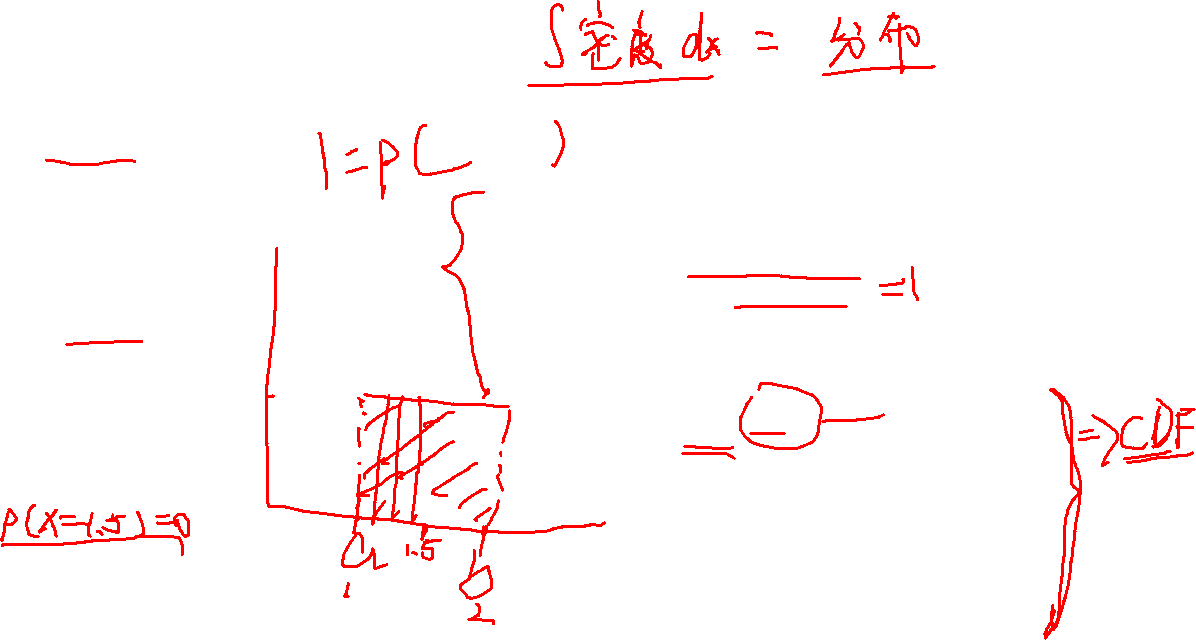 ∫密度 dx = 分布
1=P( )
=1
=> CDF
P(X=1.5)=0
a 1.5 b
1 2